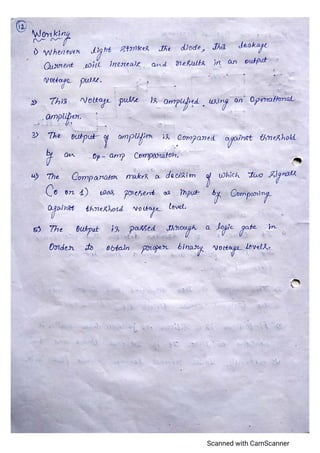 12
Working
1) Whenever light strikes the diode, this leakage
Current will increase and results in an output
voltage pulse.
2) This voltage pulse is amplified using an Operational
amplifier.
3) The output of amplifier is Compared against threshold
by an Op-amp Comparator.
4) The Comparator makes a decision of which two signals
(0 or 1) was present as input by Comparing
against threshold voltage level.
5) The output is passed through a logic gate in
Order to obtain proper binary voltage levels.
Scanned with CamScanner